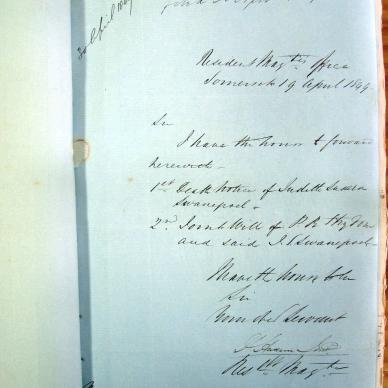 30 April 1849
Resident Magtes Office
Somerset 19 April 1849
Sir
I have the honor to forward
herewith -
1st Death Notice of Judith Susara
Swanepoel -
2nd Joint Will of P R
and said J S Swanepoel -
I have the honor to be
Sir
Your obed Servant
Res Magte